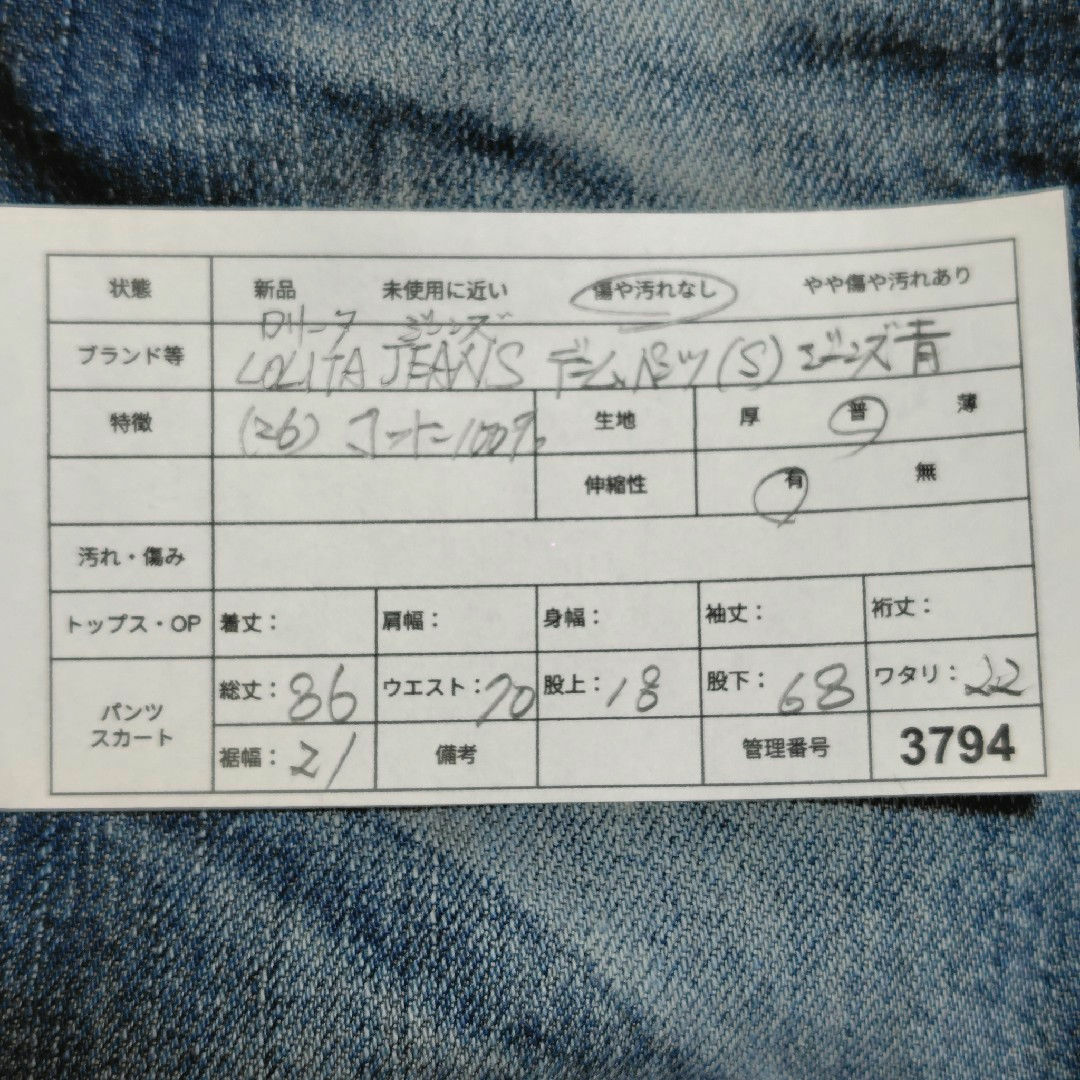 状態 新品 未使用に近い 傷や汚れなし やや傷や汚れあり
ロリータ ジーンズ
ブランド等 LOLITA JEANS デニムパンツ(S) ジーンズ青
特徴 (26) コットン100% 生地 厚 普 薄
伸縮性 有 無
汚れ・傷み
トップス・OP 着丈： 肩幅： 身幅： 袖丈： 裄丈：
パンツ スカート 総丈：86 ウエスト：70 股上：18 股下：68 ワタリ：22
裾幅：21 備考 管理番号 3794